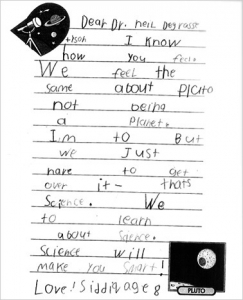 Dear Dr. Neil Degrasse
Tyson I Know
how you feel.
We feel the
same about Pluto
not being
a Planet.
I'm to But
we Just
have to get
over it- thats
Science. We
to learn
about Science.
Science will
make you Smart!
Love! Siddiq age 8
PLUTO